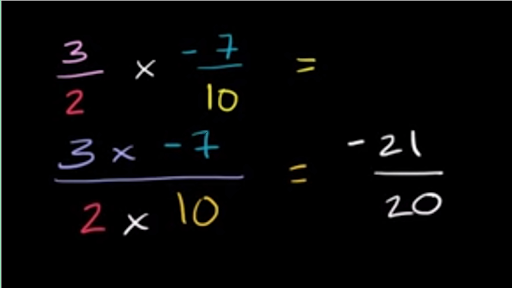 3/2 × -7/10 =
3 × -7 / 2 × 10 = -21/20